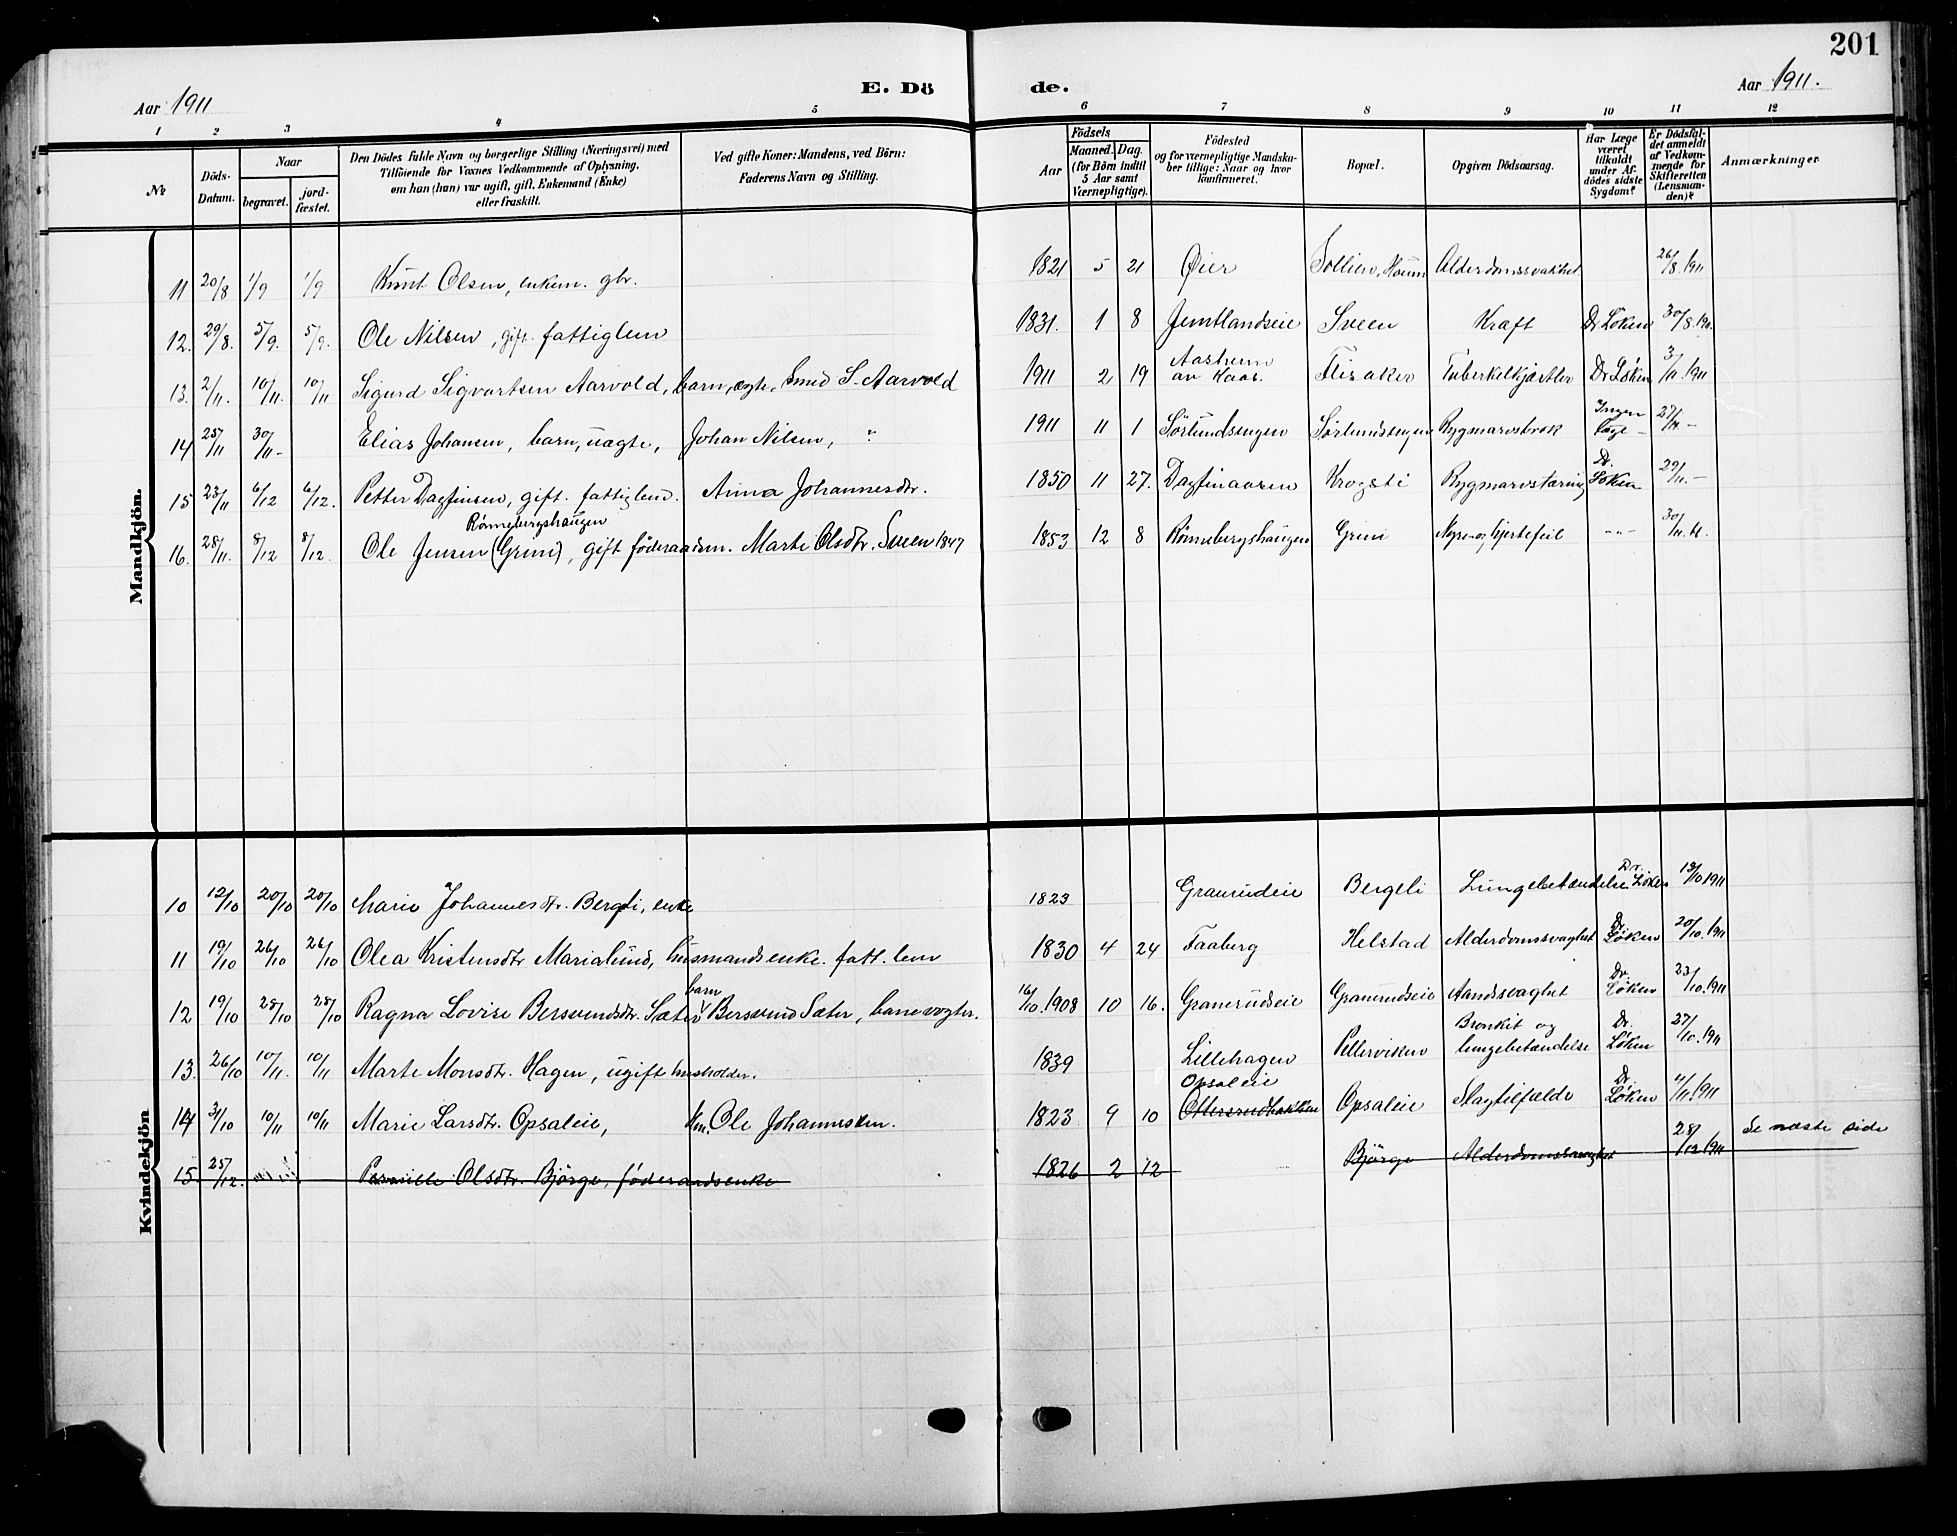 201
Aar 1911
E. Dö
de.
Aar 1911.
1 2 3 4 5 6 7 8 9 10 11 12
No
Döds-Datum.
Naar
begravet.
jord-fæstet.
Den Dödes fulde Navn og borgerlige Stilling (Næringsvei) med
Tilföiende for Voxnes Vedkommende af Oplysning,
om han (hun) var ugift, gift, Enkemand (Enke)
eller fraskilt.
Ved gifte Koner: Mandens, ved Börn:
Faderens Navn og Stilling.
Födsels
Aar
Maaned. Dag.
(for Börn indtil
5 Aar samt
Værnepligtige).
Födested
og for værnepligtige Mandska-
ber tillige: Naar og hvor
konfirmeret.
Bopæl.
Opgiven Dödsaarsag.
Har Læge
været
tilkaldt
under Af-
dödes sidste
Sygdom?
Er Dödsfal-
det anmeldt
af Vedkom-
mende for
Skifteretten
(Lensman-
den)?
Anmærkninger
Mandkjön.
11 20/8 1/9 1/9 Knut Olsen, enkem. gbr. 1821 5 21 Øier Sollien, Alderdomssvakhet 26/8.1911
12. 29/8. 5/9. 5/9. Ole Nilsen, gift. fattiglem 1831. 1 8 Jemtlandseie Sveen Kræft Dr Løken 30/8.1911
13. 2/11. 10/11. 10/11 Sigurd Sigvartsen Aarvold, barn, ægte, Smed S. Aarvold 1911 2 19 Aasheim av Kaas. Flisaker Tuberkelkjærtler Dr Løken 3/11.1911
14 25/11 30/11- Elias Johansen, barn, uægte, Johan Nilsen, 1911 11 1 Sørlundsengen Sørlundsengen Rygmarvsbrok Ingen læge - 27/11 -
15 23/11 6/12 6/12. Petter Dagfinsen, gift. fattiglem. Anna Johannesdtr. 1850 11 27. Krogsti Rygmarvstæring Dr. Løken 29/11. -
Rønnebergshaugen
16. 28/11. 8/12 8/12. Ole Jensen (Grini), gift føderaadsm. Marte Olsdtr. Sveen 1847 1853 12 8 Rønnebergshaugen Grini Nyre og hjertefeil - " - 30/11.
Kvindekjön
10 12/10 20/10 20/10 Marie Johannesdtr. Bergli, enke 1823 Granrudeie Bergeli Lungebetændelse Dr. Løken 13/10 1911
11 19/10 26/10 26/10 Olea Kristensdtr Marialund, husmandsenke. fatt. lem 1830 4 24 Faaberg Helstad Alderdomssvaghet Dr Løken 20/10.1911
barn
12 19/10 28/10 28/10 Ragna Lovise Bersvendsdtr. Sæter Bersvend Sæter, banevogter. 16/10.1908 10 16. Granerudseie Granrudseie Aandsvaghet Dr. Løken 23/10.1911
13. 26/10 10/11. 10/11 Marte Monsdtr. Hagen, ugift husholder. 1839 Lillehagen Pellerviken Bronkit og lungebetændelse Dr. Løken 27/10.1911
Opsaleie
14 31/10 10/11 10/11 Marie Larsdtr. Opsaleie, km. Ole Johannessen. 1823 9 10 Ottersrudbakken Opsaleie Slagtilfælde Dr. Løken 4/11.1911
15. 25/12. Pernille Olsdtr. Bjørge, føderaadsenke 1826 2 12 Bjørge Alderdomssvaghet 28/12 1911 Se næste side